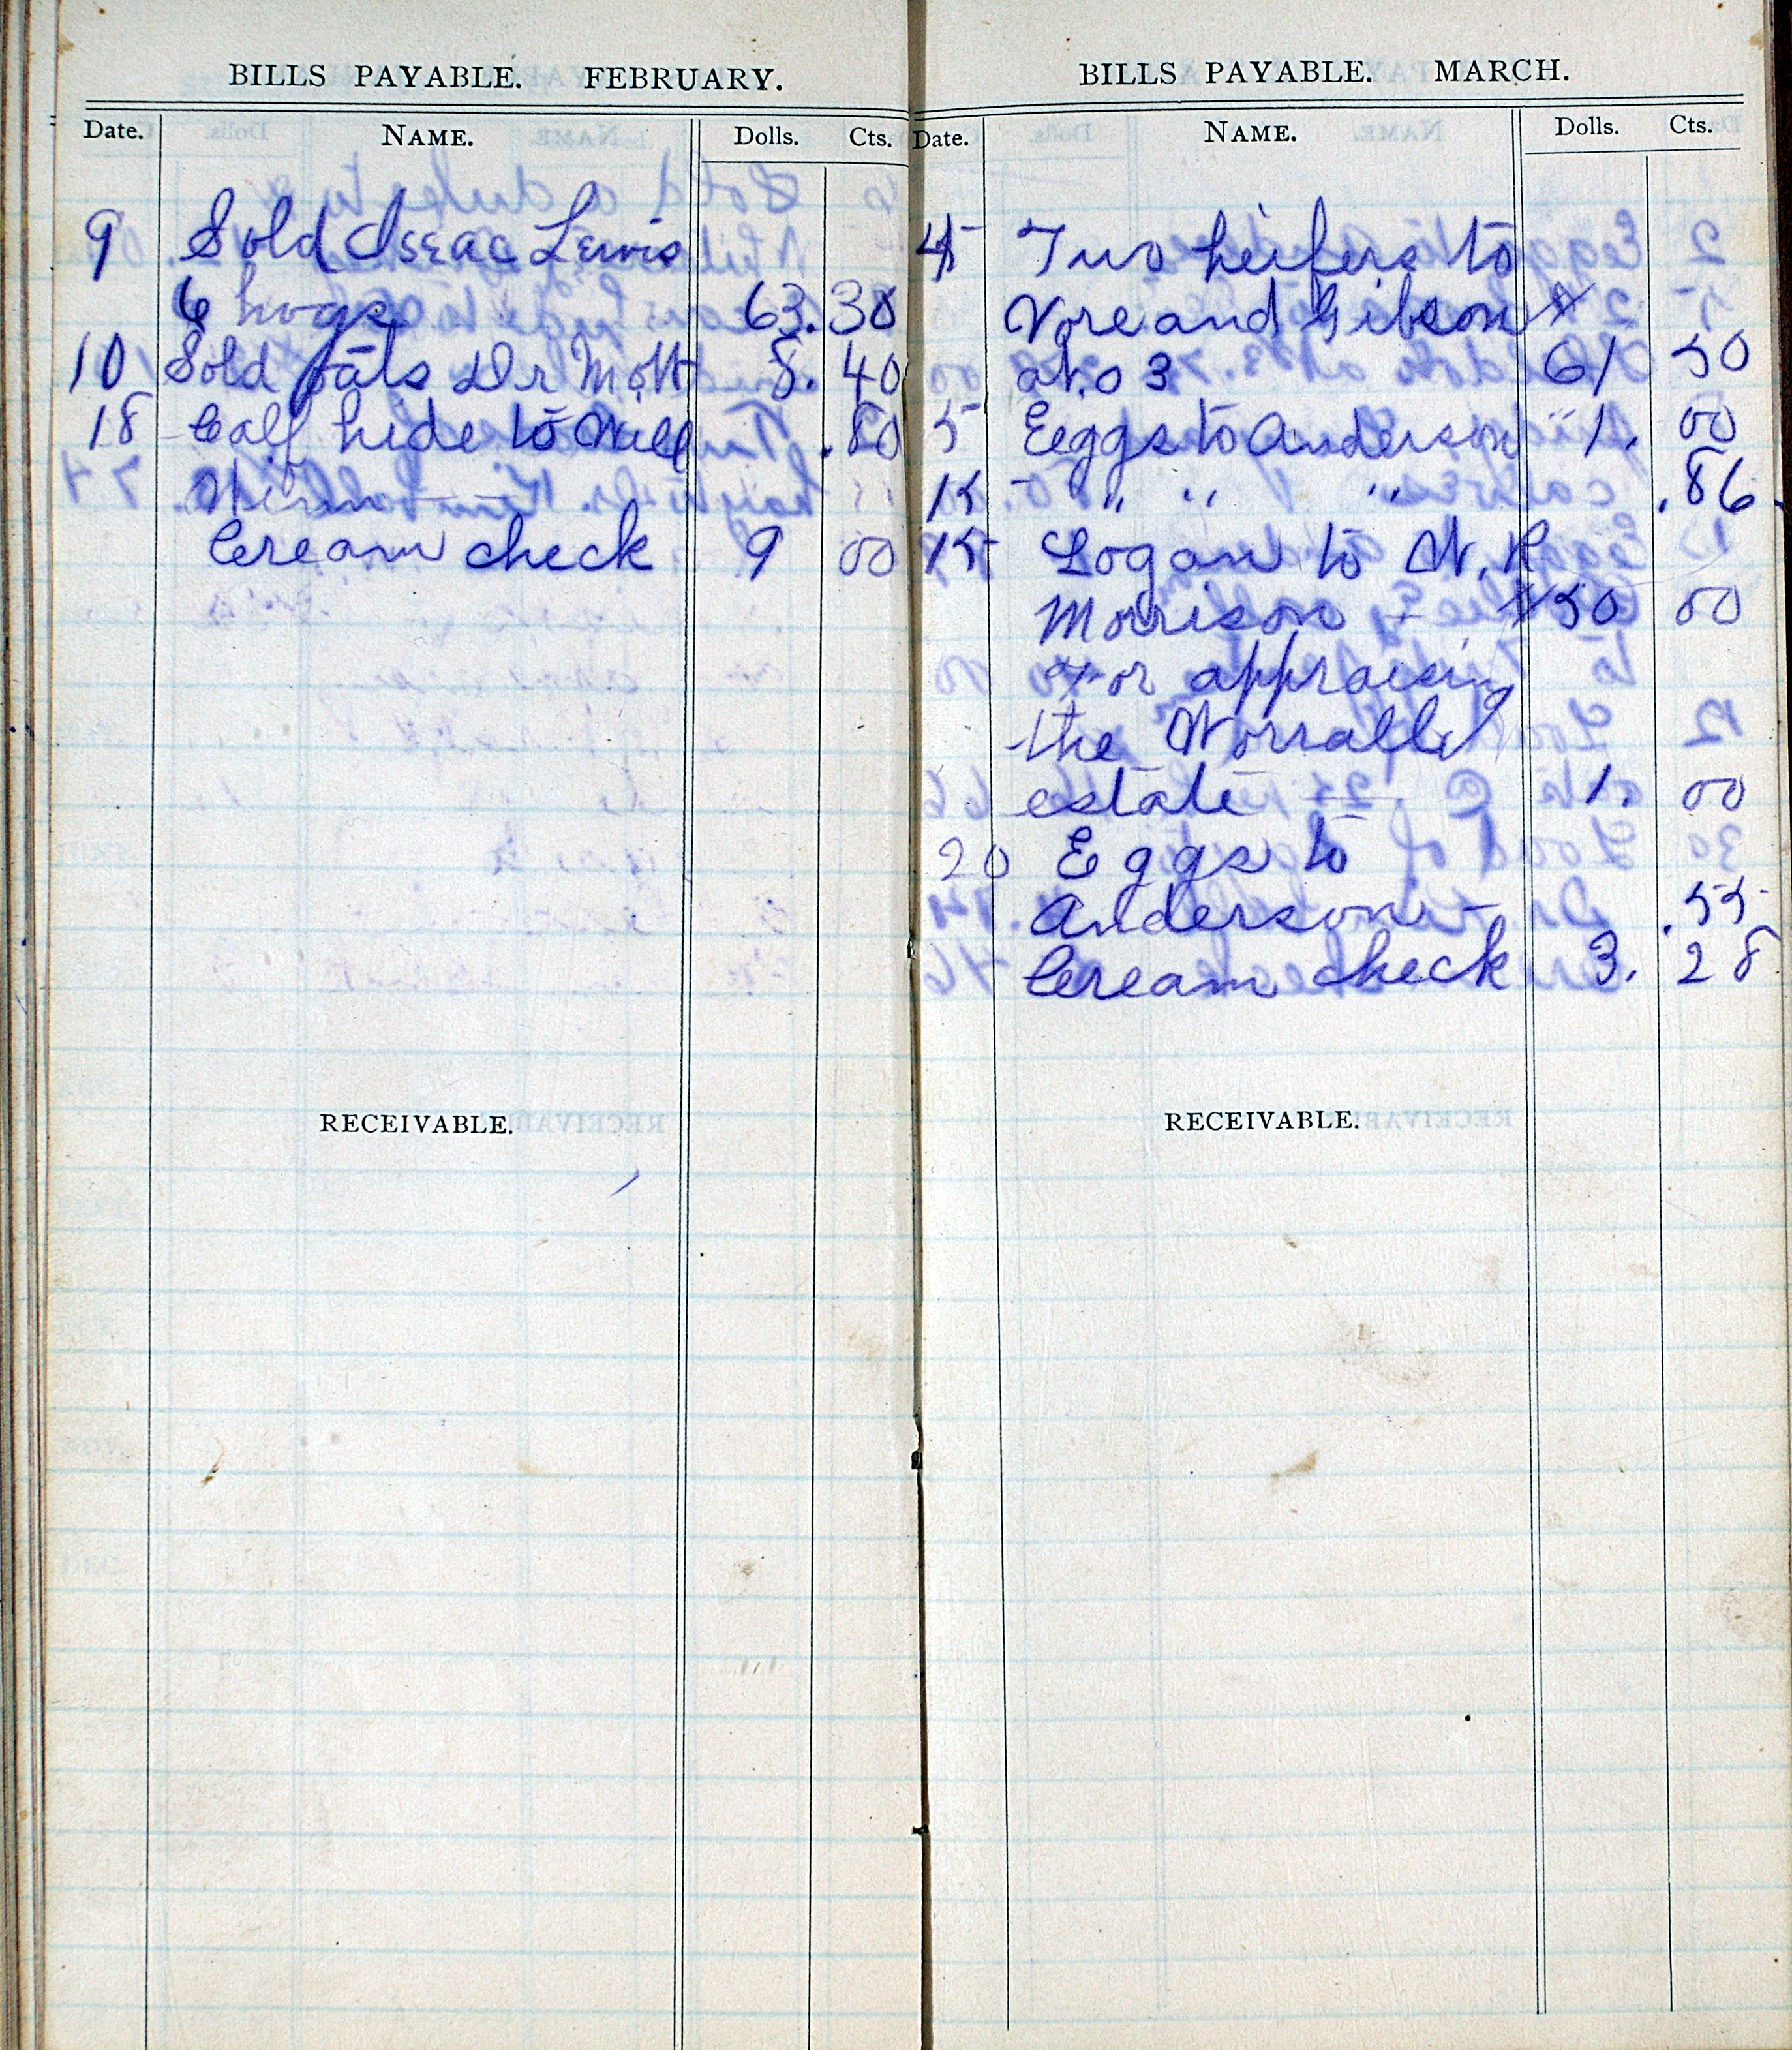 BILLS PAYABLE. FEBRUARY.
Date. NAME. Dolls. Cts.
9 Sold Iseac Lewis
6 hogs 63.30
10 Sold oats Dr Mott 8. 40
18 Calf hide to Will .80
Cream check 9 00
RECEIVABLE.
BILLS PAYABLE. MARCH.
Date. NAME. Dolls. Cts.
Two heifers to
Vore and Gibson
at .03 61 50
5 Eeggs to Anderson 1. 00
15 " " " .86
15 Logan to W. R
Morrison 50 00
For appraising
the Worrall
estate 1. 00
20 Eggs to
Anderson - .55
Cream check 3. 28
RECEIVABLE.